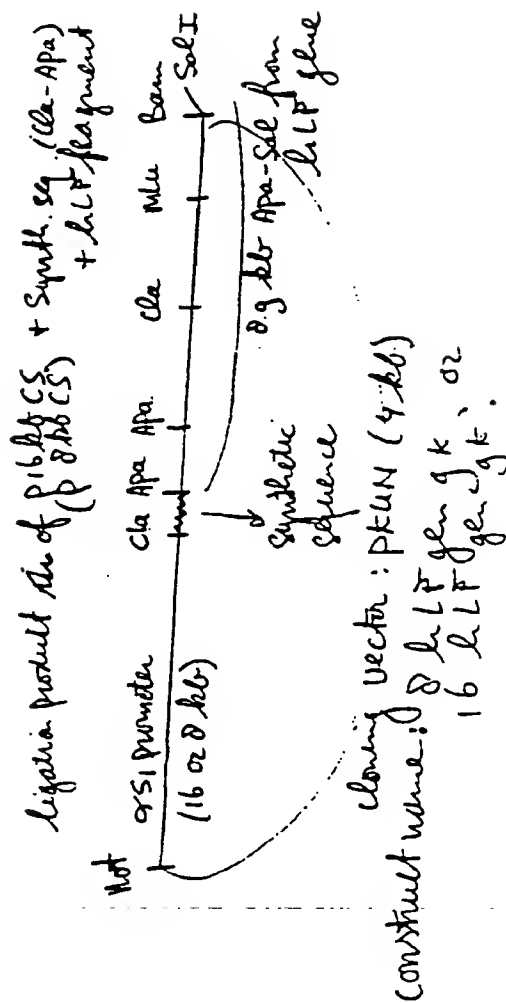 ligation product of p16kbCS + Synth. seq. (Cla-Apa)
(p 8kbCS) + hLF fragment
Not
αS1 promoter
(16 or 8 kb)
Cla Apa Apa. Cla Mlu Bam
Sal I
Synthetic
sequence
8.9 kb Apa-Sal from
hLF gene
cloning vector: pKUN (4 kb)
Construct name: 8 hLF gen 9 k or
16 hLF gen 9 k.